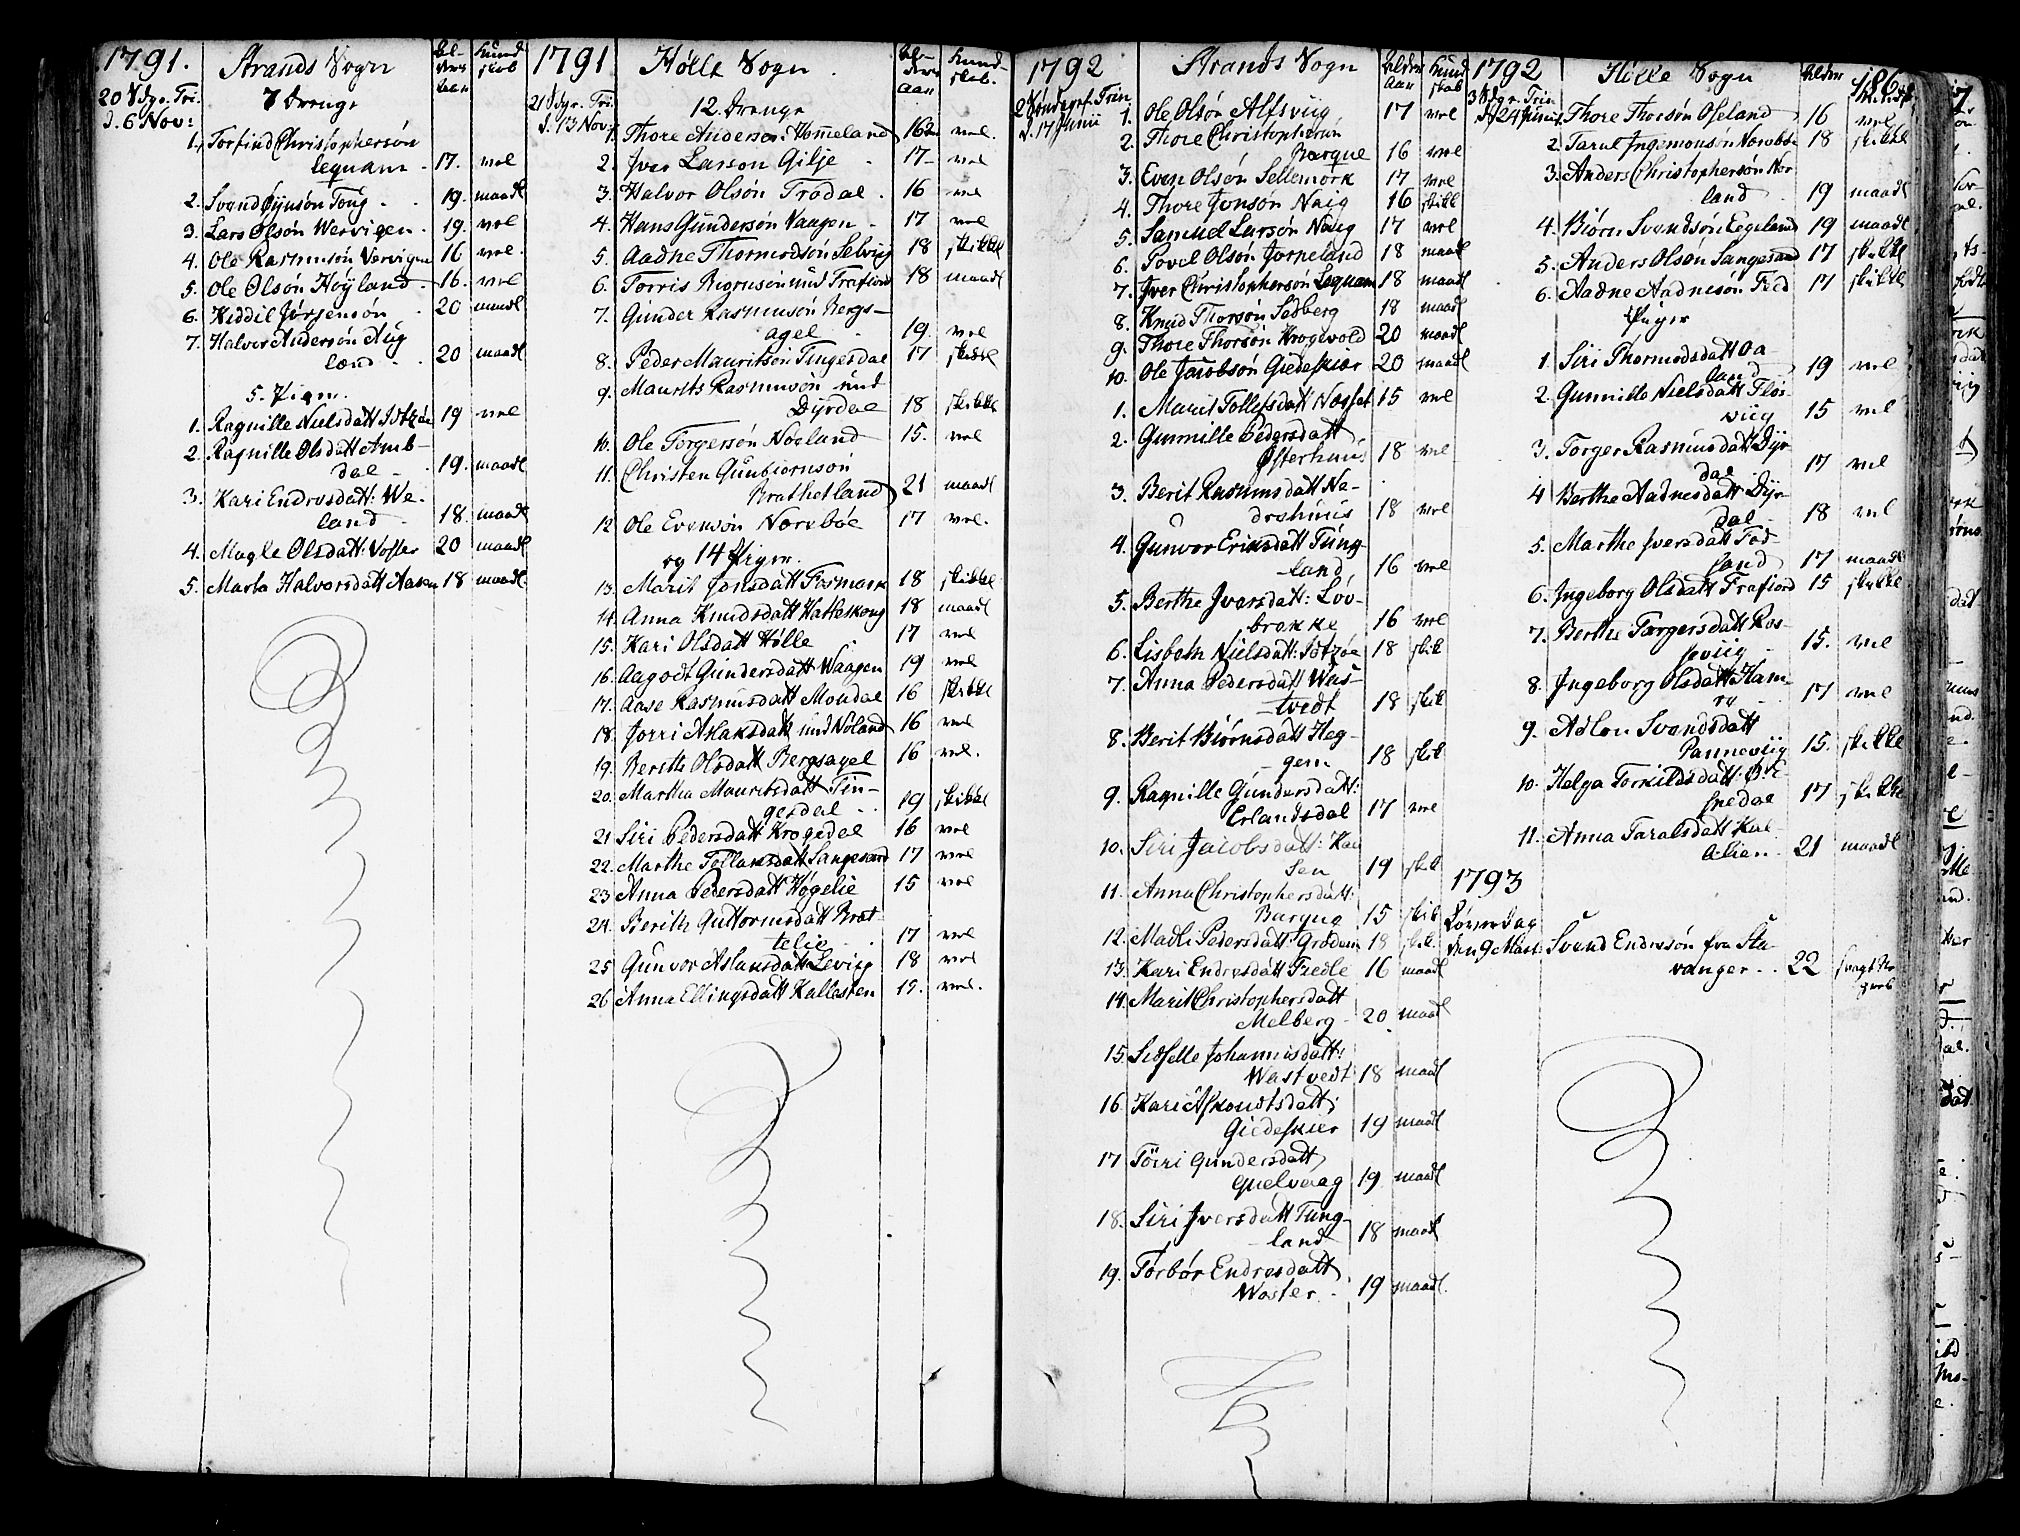 1791.
Strands Sogn
Al-
ders
aar
Kund
skab
20 S. e. Tri.
d. 6 Nov:
7 Drenge
1. Torfind Christophersön
Lequam - 17. vel
2. Svend Ejvisön Toug - 19. maadl
3. Lars Olsön Wervigen - 19. vel
4. Ole Rasmusön Vervigen 16 vel.
5. Ole Olsön Höyland - 16. vel
6. Kiddil Jörgensön 20 maadl
7. Halvor Andersön Aug
land - 20 maadl
5. Piger.
1. Ragnille Nielsdatt Botzöe 19 vel
2. Ragnille Olsdatt Amb-
dal - 19. maadl
3. Kari Endresdatt: We-
land - 18. maadl
4. Magle Olsdatt: Voster 20 maadl
5. Marta Halvorsdatt Aasen 18 maadl.
1791
Hölle Sogn.
Al-
ders
aar
Kund
skab.
21 S. e. Tri.
d. 13 Nov:
12 Drenge
1. Thore Anderson Hommeland 16 vel.
2. Iver Larson Gilje - 17 - vel
3. Halvor Olson Frödal. 16 vel
4. Hans Gundersön Vaagen - 17 vel.
5. Aadne Thormodsön Selvig 18 skikkl
6. Torris Biörnsön und Frafiord 18 maadl
7. Gunder Rasmusön Bergs-
agel - 19. vel
8. Peder Mauritsön Tingesdal 17 skikkl
9. Maurits Rasmusön und
Dyrdal 18 skikkl
10. Ole Torgersön Nöeland 15. vel
11. Christen Gunbiornsön
Brathetland 21 maadl
12 Ole Evensön Norebøe 17 vel.
og 14 Piger.
13. Marit Jonsdatt Fosmark 18 skikkl
14. Anna Knudsdatt Hatleskoug 18 maadl
15. Kari Olsdatt Hölle 17 vel
16. Aagodt Gundersdatt Waagen 19 vel
17. Aase Rasmusdatt Mondal 16 skikkl
18. Jorri Aslaksdatt und Nöland 16 vel
19. Berthe Olsdatt Bergsagel 16 vel.
20. Martha Mauritsdatt Tin-
gesdal - 19 skikkl
21 Siri Pedersdatt Krogedal 16 vel
22. Marthe Tollansdatt Sangesand 17 vel
23 Anna Pedersdatt Högelie 15 vel
24. Berith Guttormsdatt Brat-
telie - 17 vel
25 Gunvor Aslansdatt Levig 18 vel
26 Anna Ellingsdatt Kallesten 19. vel.
1792
Strands Sogn
Alder
Aar
Kund
skab
2 Söndag ef. Trin.
d. 17 Junii
1. Ole Olsön Alfsviig 17 vel
2. Thore Christophersön
Barque 16 vel
3. Even Olsön Sellemork 17 vel
4. Thore Jonson Naig 16 skikl
5. Samuel Larsön Naig 17 vel
6. Povel Olsön Jorpeland 18 maadl
7. Iver Christophersön Lequam 18 maadl
8. Knud Thorsön Sedberg 18 maadl
9. Thore Thorsön Krogevold 20 maadl
10. Ole Jacobsön Giedeskier 20 maadl
1. Marit Tollefsdatt Næsset 15 vel
2. Gunnille Pedersdatt
Österhuus 18 vel
3. Berit Rasmusdatt Ne-
drehuus 18 vel
4. Gunvor Eriksdatt Tung-
land 16 vel
5. Berthe Ivarsdatt: Löv-
brekke 16 vel
6. Lisbeth Nielsdatt: Botzöe 18 skik
7. Anna Pedersdatt Was-
tvedt 18 skik
8. Berit Biörnsdatt Heg-
gem 18 skik
9. Ragnille Gundersdatt:
Erlandsdal 17 vel
10. Siri Jacobsdatt: Kau
sen 19 skik
11. Anna Christophersdatt:
Barqua 15 skik
12. Madli Pedersdatt: Grödem 18 skik
13. Kari Endresdatt Fredle 16 maadl
14. Marit Christophersdatt
Melberg - 20 maadl
15. Sidselle Johannisdatt:
Wastvedt 18 maadl
16. Kari Askoudsdatt:
Giedeskier 19 maadl
17 Törri Gundersdatt
Quelvaag 19 maadl
18. Siri Iversdatt Tung-
land 18 maadl
19. Torbör Endresdatt
Woster. 19 maadl.
1792
Hölle Sogn
Alder
186
3 S. e. Trin.
d. 24 Junii
1. Thore Thorsön Oseland 16 vel
2. Tarul Ingemonsön Norebøe 18 skikkl
3. Anders Christophersön Nor
land 19 maadl
4. Biörn Svendsön Eegeland 19 maadl
5. Anders Olsön Sangesand 17 skikkl
6. Aadne Aadnesön Fred 17 skikkl
Piger
1. Siri Thormodsdatt Oa-
land 19 vel
2. Gunnille Nielsdatt Flös-
viig 15 vel
3. Torger Rasmusdatt Dyr
dal 17 vel
4 Berthe Aadnesdatt Dyr-
dal - 18 vel
5. Marthe Iversdatt Fos-
sand 17 maadl
6. Ingeborg Olsdatt Frafiord 15 skikkl
7. Berthe Torgersdatt Ros-
sviig 15. vel
8. Ingeborg Olsdatt Ham-
re - 17 vel
9. Adlou Svendsdatt
Panneviig 15. skikkl
10. Helga Torkildsdatt: Bre
spedal 17 skikkl
11. Anna Taralsdatt Kal-
lelien. 21 maadl
1793
Löverdag
den 9 Mart
Svend Endresön fra Sta
vanger. . 22